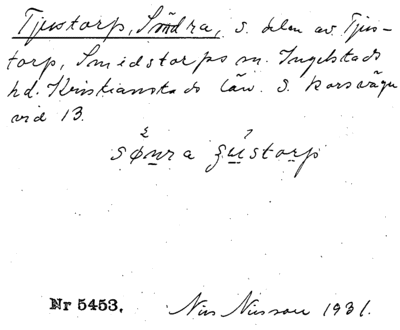 Tjustorp, Södra, s. delen av Tjus-
torp, Smidstorps sn. Ingelstads
hd. Kristianstads län. S. korsvägen
vid 13.
Nr 5453.
Nils Nilsson 1931.